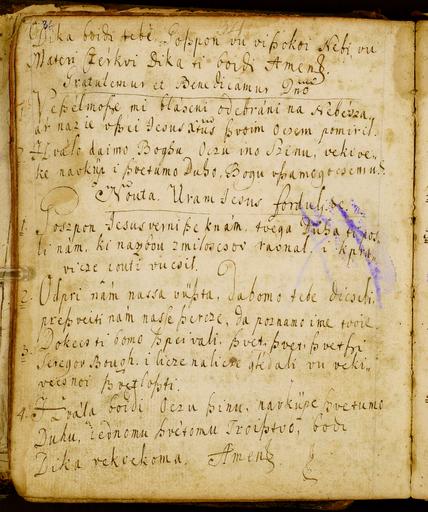 Dika boidi tebe, Goſzpon vu viſzokoi Nebi, vu
Materi Czerkvi dika ti boidi Amen
Gratulemur et Benedicamur Dno
Veſzelmoſze mi blaseni odebráni na Nebésza,
ár naz ie vſzei Jesus xtus ſzvoim Oczem pomiril.
Hválo daimo Boghu Oczu ino Szinu, vekive,,
ke navküp i ſzvetumo Duho, Bogu vſzamogocsemu.
Nouta. Uram Jesus fordulj
1. Goszpon Jesus verniſze knám, tvega Duha ti
li nám, ki nazbou z miloscsov ravnal, i k pra
vicze vucsil.
2. Odpri nám naſsa vüſzta, dabomo tebe dicsili,
preſzveiti nam naſse ſzercze, da poznamo ime tvoie.
3. Dokecs ti bomo ſzpeivali, ſzvet, ſzvet, ſzvet ſzi
Seregov Bough, i licze na licze gledali vu veki,,
vecsnoi ſzvetloſzti.
4. Hvala boidi Oczu ſzinu, navküpe ſzvetumo
Duhu, iednomu ſzvétomu Troiſztvo, boidi
Dika vekvekoma. Amen